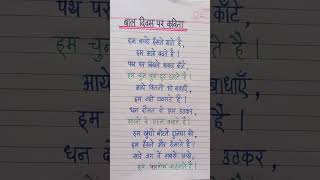 बाल दिवस पर कविता
हम बच्चे हँसते गाते हैं,
हम आगे बढ़ते हैं।
पथ पर बिखरे कंकड़ काँटे,
हम चुन चुन दूर हटाते हैं।
आयें कितनी भी बाधाएँ,
हम नही घबराते हैं।
धन दौलत से ऊपर उठकर,
सपनों के महल बनाते हैं।
हम खुशी बाँटते दुनिया को,
हम हँसते और हँसाते हैं।
सारे जग में सबसे अच्छे,
हम भारतीय कहलाते हैं।